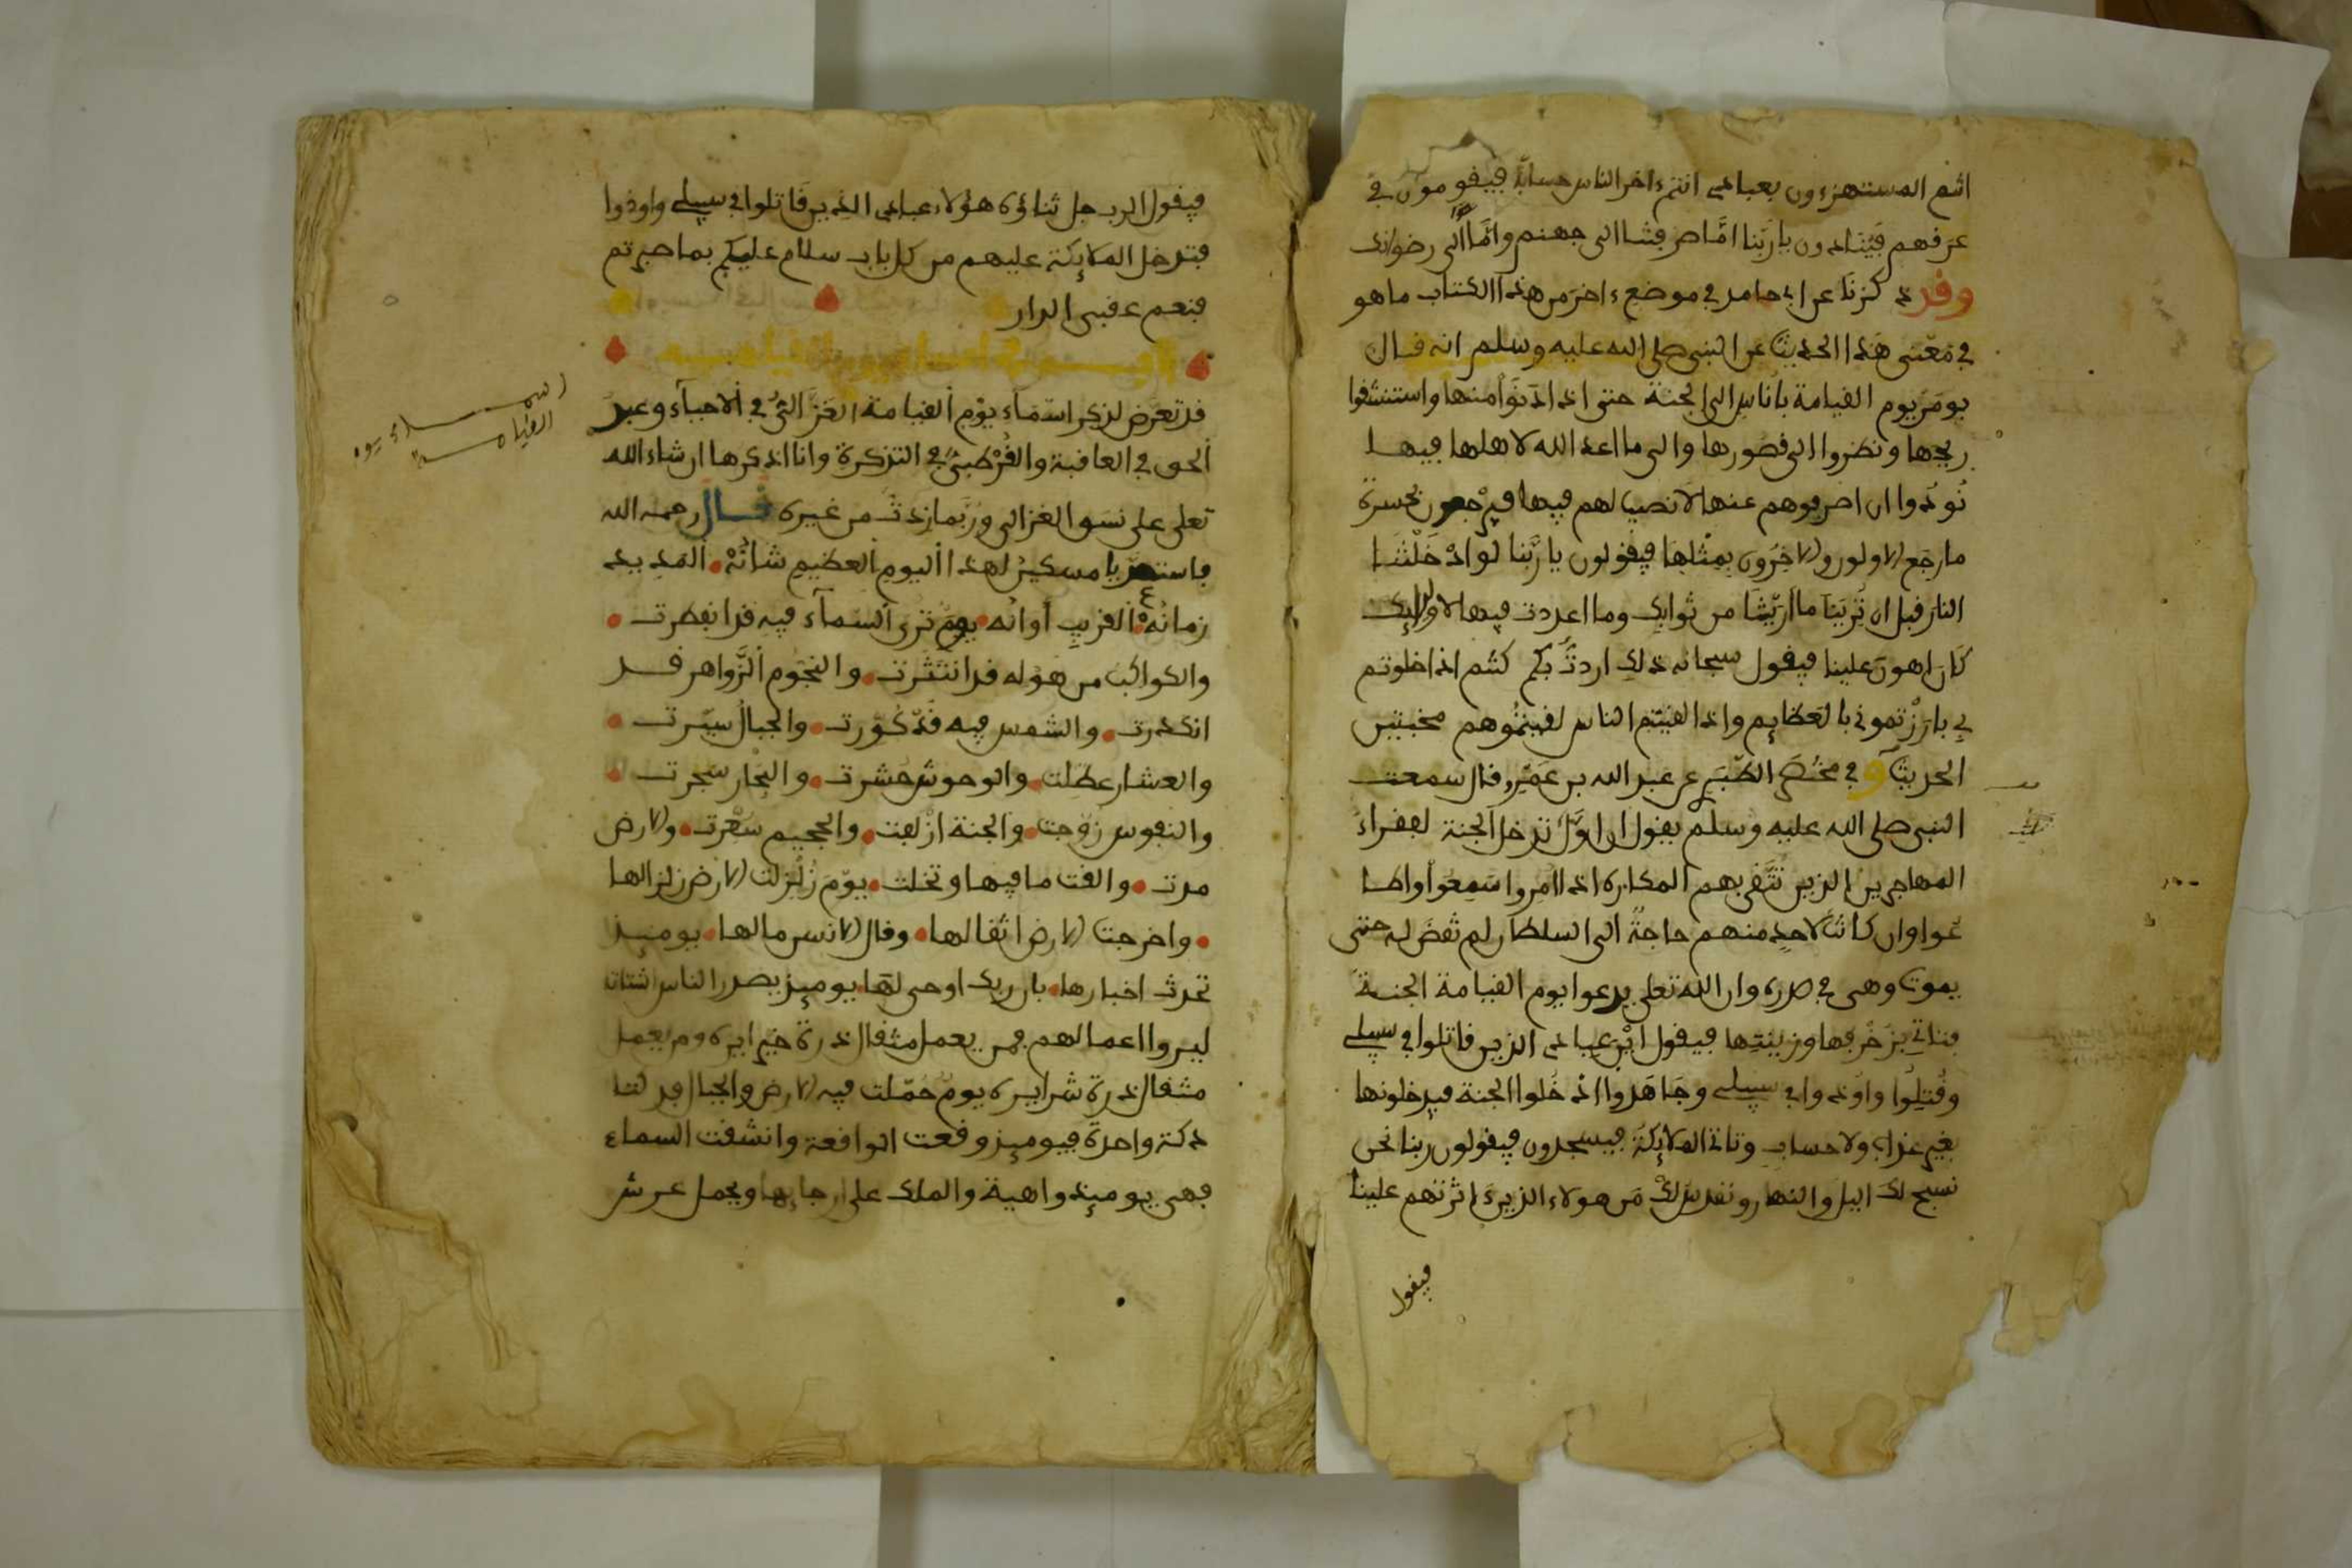 انتم المستهزءون بعبادي انتم ءاخر الناس حسابا فيقومون في
عرقهم فينادون يا ربنا امّا صرفتنا الى جهنم وامّا الى رضوانك
وقد ذكرنا عن ابي حامد في موضع ءاخر من هذا الكتاب ما هو
في معنى هذا الحديث عن النبي صلى الله عليه وسلم انه قال
يومر يوم القيامة باناس الى الجنة حتى اذا دنوا منها واستنشقوا
ريحها ونظروا الى قصورها والى ما اعد الله لاهلها فيها
نودوا ان اصرفوهم عنها لا نصيب لهم فيها فيرجعون بحسرة
ما رجع الاولون والاخرون بمثلها فيقولون يا ربنا لو ادخلتنا
النار قبل ان ترينا ما اريتنا من ثوابك وما اعددت فيها لاوليائك
كان اهون علينا فيقول سبحانه ذلك اردت بكم كنتم اذا خلوتم
بي بارزتموني بالعظايم واذا لقيتم الناس لقيتموهم مخبتين
الحديث وفي مختصر الطبري عن عبد الله بن عمرو قال سمعت
النبي صلى الله عليه وسلم يقول ان اول تدخل الجنة لفقراء
المهاجرين الذين تتقى بهم المكاره اذا امروا سمعوا واطا
عوا وان كانت لاحد منهم حاجة الى السلطان لم تقض له حتى
يموت وهي في صدره وان الله تعلى يدعوا يوم القيامة الجنة
فتاتي بزخرفها وزينتها فيقول اين عبادي الذين قاتلوا في سبيلي
وقتلوا واوذوا في سبيلي وجاهدوا ادخلوا الجنة فيدخلونها
بغير عذاب ولا حساب وتاتي الملايكة فيسجدون فيقولون ربنا نحن
نسبح لك اليل والنهار ونقدس لك من هولاء الذين ءاثرتهم علينا
فيقول
فيقول الرب جل ثناؤه هؤلاء عبادي الذين قاتلوا في سبيلي واوذوا
فتدخل الملايكة عليهم من كل باب سلام عليكم بما صبرتم
فنعم عقبى الدار
قد تعرض لذكر اسماء يوم القيامة الغزالي في الاحياء وعبد
الحق في العاقبة والقرطبي في التذكرة وانا اذكرها ان شاء الله
تعلى على نسق الغزالي وربما زدت من غيره قال رحمه الله
فاستعد يا مسكين لهذا اليوم العظيم شانه المديد
زمانه القريب اوانه يوم ترى السماء فيه قد انفطرت
والكواكب من هوله قد انتثرت والنجوم الزواهر قد
انكدرت والشمس فيه قد كورت والجبال سيرت
والعشار عطلت والوحوش حشرت والبحار سجرت
والنفوس زوجت والجنة ازلفت والجحيم سعرت والارض
مدت والقت ما فيها وتخلت يوم زلزلت الارض زلزالها
واخرجت الارض اثقالها وقال الانسن مالها يوميذ
تحدث اخبارها بان ربك اوحى لها يوميذ يصدر الناس اشتاتا
ليروا اعمالهم فمن يعمل مثقال ذرة خيرا يره ومن يعمل
مثقال ذرة شرا يره يوم حملت فيه الارض والجبال فدكتا
دكة واحدة فيوميذ وقعت الواقعة وانشقت السماء
فهي يوميذ واهية والملك على ارجايها ويحمل عرش
اسماء يوم
القيامة